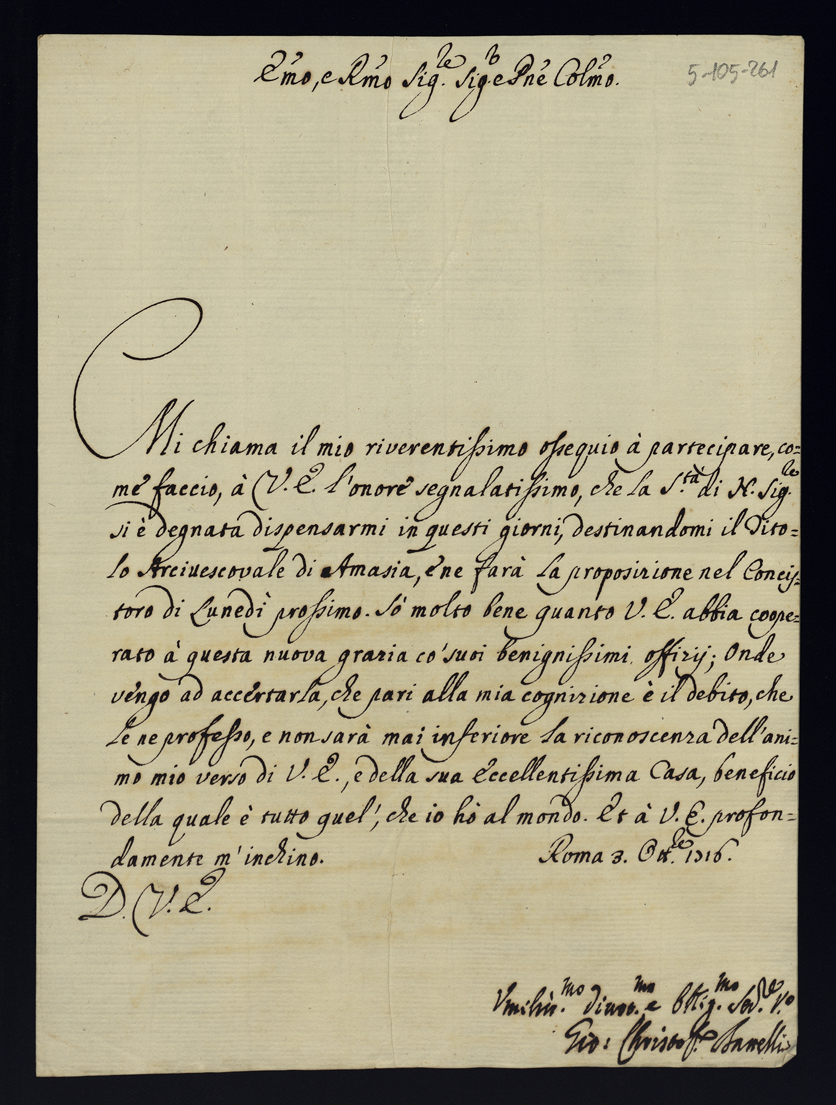 Emo, e Rmo Sig.re Sig.e Pne Colmo.
5-105-261
Mi chiama il mio riverentissimo ossequio à partecipare, co=
me faccio, à V. E. l'onore segnalatissimo, che la S.tà di N. Sig.re
si è degnata dispensarmi in questi giorni, destinandomi il Tito=
lo Arciuescovale di Amasia, e ne farà la proposizione nel Concis=
toro di Lunedì prossimo. Sò molto bene quanto V. E. abbia coope=
rato à questa nuova grazia co' suoi benignissimi offizij; Onde
vengo ad accertarla, che pari alla mia cognizione è il debito, che
le ne professo, e non sarà mai inferiore la riconoscenza dell'ani=
mo mio verso di V. E., e della sua Eccellentissima Casa, beneficio
della quale è tutto quel', che io hò al mondo. Et à V. E. profon=
damente m'inchino.
Roma 3. Ott.re 1716.
D. V. E.
Vmiliss.mo Diuot.mo e Obblig.mo Ser.re V.o
Gio: Christof.o